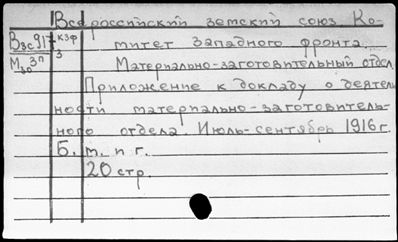 Всероссийский земский союз. Ко-
Взс917 кзф митет Западного фронта.
3
М во 3п Материально-заготовительный отдел
Приложение к докладу о деятель
ности материально-заготовитель-
ного отдела. Июль-сентябрь 1916 г.
Б. м. и г.
20 стр.